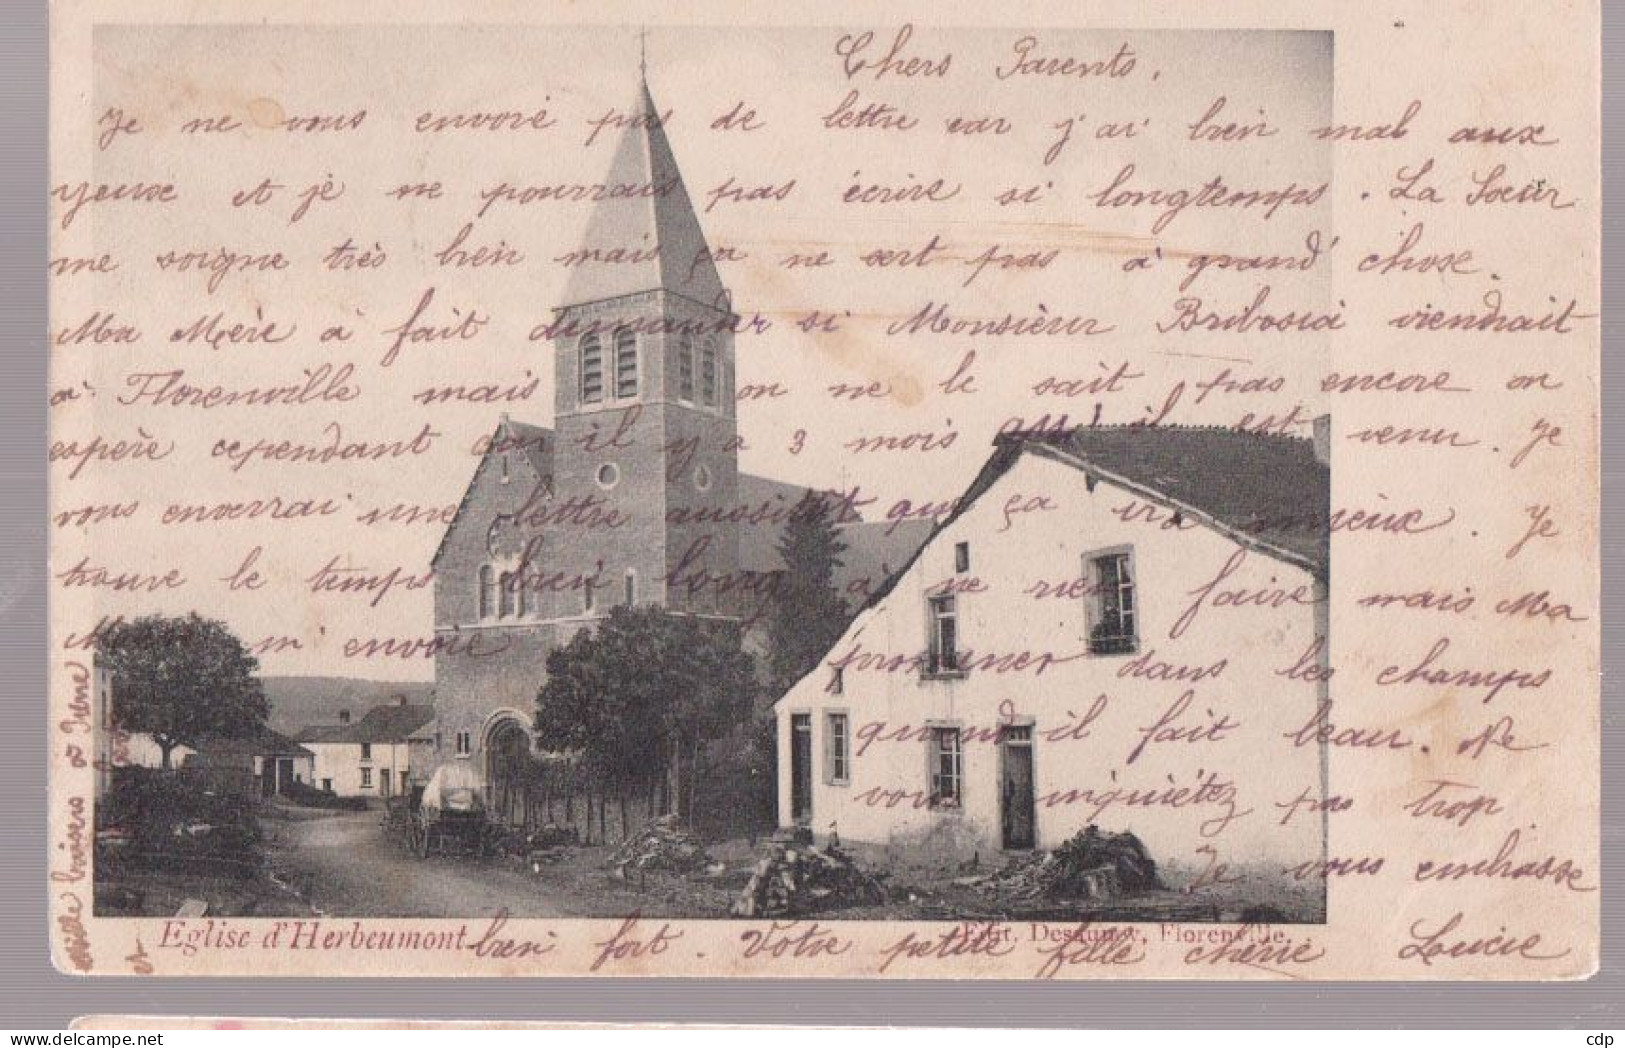 Chers Parents,
Je ne vous envoie pas de lettre car j'ai bien mal aux
yeux et je ne pourrais pas écrire si longtemps. La Sœur
me soigne très bien mais ça ne sert pas à grand' chose.
Ma Mère à fait demander si Monsieur Bribosia viendrait
à Florenville mais on ne le sait pas encore on
espère cependant car il y a 3 mois qu'il est venu. Je
vous enverrai une lettre aussitôt que ça ira mieux. Je
trouve le temps bien long à ne rien faire mais Ma
M m'envoie promener dans les champs
quand il fait beau. Ne
vous inquiétez pas trop
Je vous embrasse
bien fort. Votre petite fille chérie Lucie
Mille baisers à Irène
et
Eglise d'Herbeumont
Edit. Desaunoy, Florenville.
delcampe.net
cdp